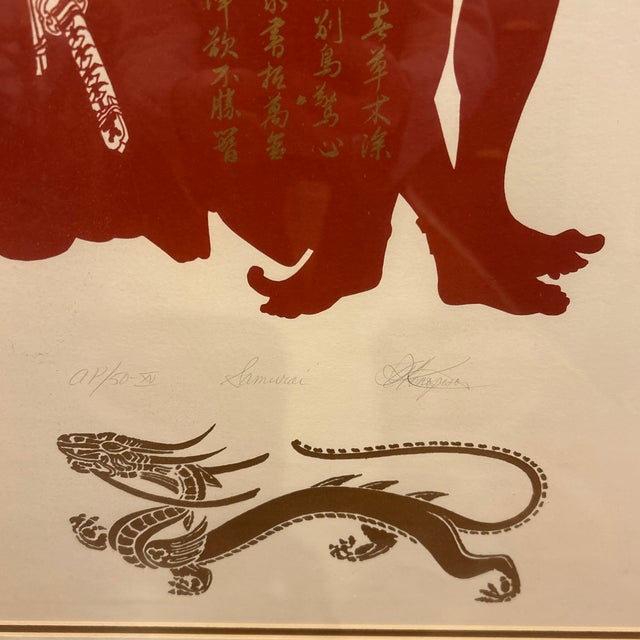 春草木深
別鳥驚心
書抵萬金
欲不勝簪
AP/50-XV Samurai